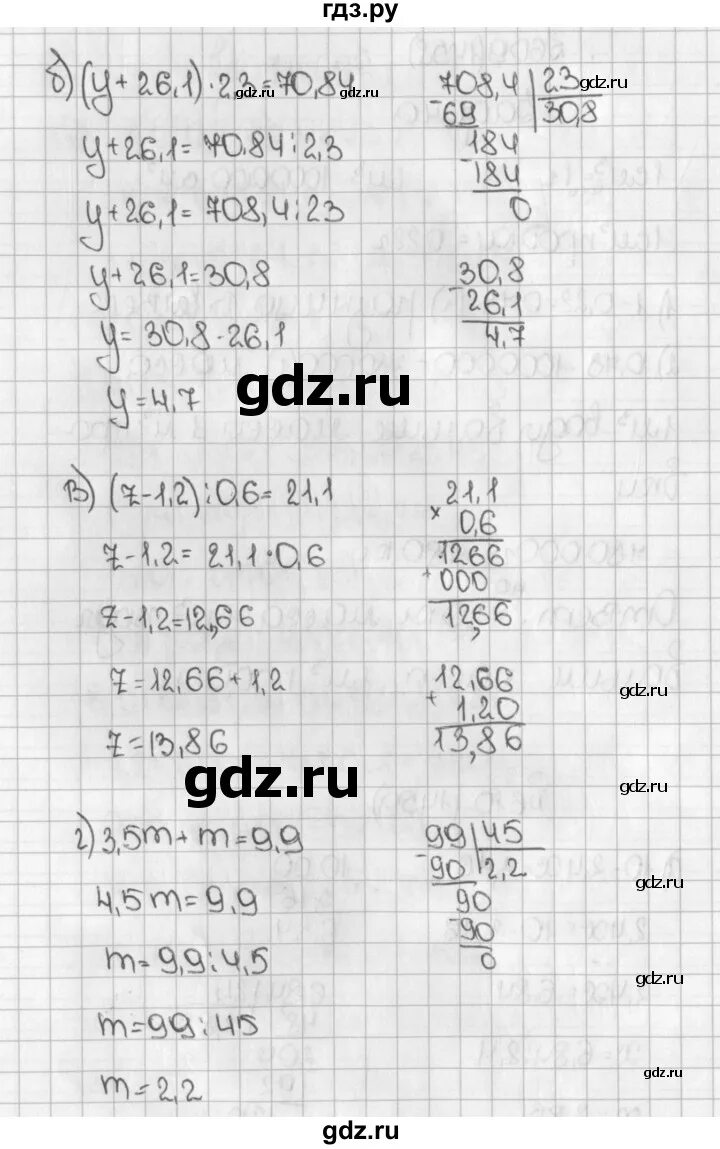 гдз.ру
б) (y + 26,1) · 2,3 = 70,84
y + 26,1 = 70,84 : 2,3
y + 26,1 = 708,4 : 23
y + 26,1 = 30,8
y = 30,8 - 26,1
y = 4,7
708,4 | 23
- 69 | 30,8
184
- 184
0
30,8
- 26,1
4,7
gdz.ru
gdz.ru
gdz.ru
gdz.ru
в) (z - 1,2) : 0,6 = 21,1
z - 1,2 = 21,1 · 0,6
z - 1,2 = 12,66
z = 12,66 + 1,2
z = 13,86
21,1
× 0,6
1266
+ 000
12,66
12,66
+ 1,20
13,86
gdz.ru
gdz.ru
gdz.ru
г) 3,5m + m = 9,9
4,5m = 9,9
m = 9,9 : 4,5
m = 99 : 45
m = 2,2
99 | 45
- 90 | 2,2
90
- 90
0
gdz.ru
gdz.ru
gdz.ru
gdz.ru